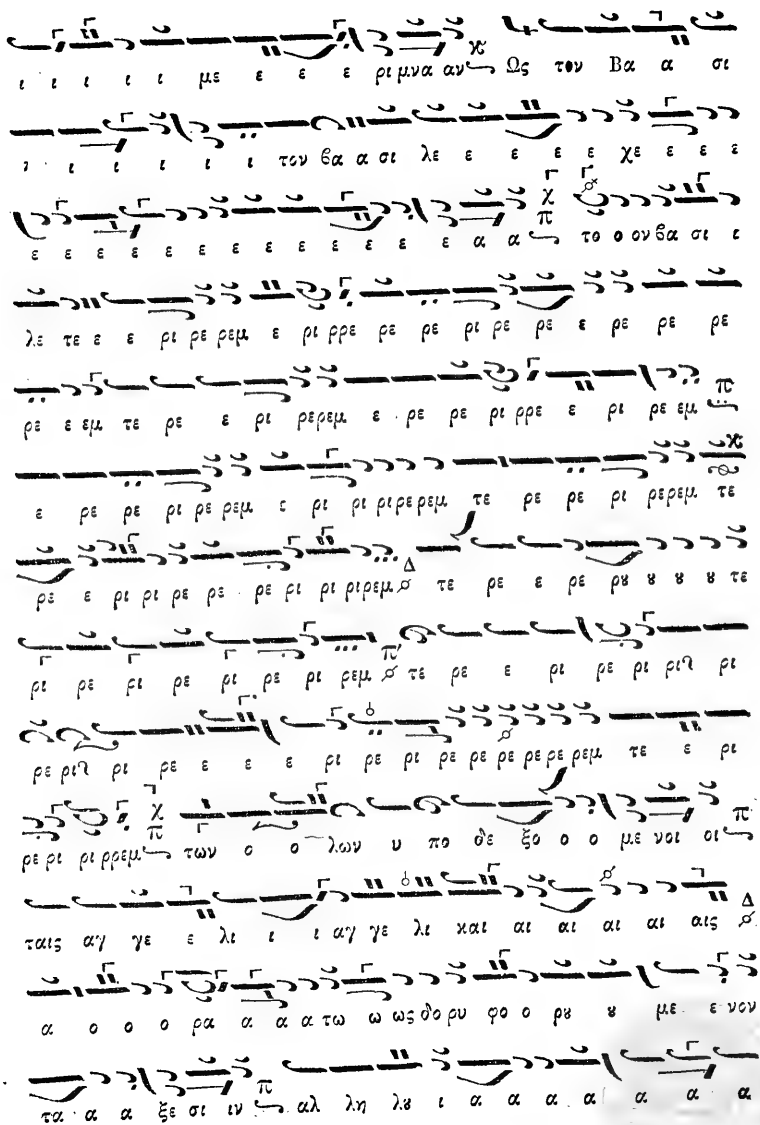 ι ι ι ι ι με ε ε ε ρι μνα αν Ως τον Βα α σι
ι ι ι ι ι ι τον βα α σι λε ε ε ε ε χε ε ε ε
ε ε ε ε ε ε ε ε ε ε ε ε α α το ο ον βα σι ι
λε τε ε ε ρι ρε ρεμ ε ρι ρρε ρε ρε ρι ρε ρε ε ρε ρε ρε
ρε ε εμ τε ρε ε ρι ρερεμ ε ρε ρε ρι ρρε ε ρι ρε εμ
ε ρε ρε ρι ρε ρεμ ε ρι ρι ρι ρε ρεμ τε ρε ρε ρι ρερεμ τε
ρε ε ρι ρι ρε ρε ρε ρι ρι ριρεμ τε ρε ε ρε ρȣ ȣ ȣ ȣ τε
ρι ρε ρι ρε ρι ρε ρι ρεμ τε ρε ε ρι ρε ρι ριζ ρι
ρε ριζ ρι ρε ε ε ε ρι ρε ρι ρε ρε ρε ρε ρε ρεμ τε ε ρι
ρε ρι ρι ρρεμ των ο ο λων υ πο δε ξο ο ο με νοι οι
ταις αγ γε ε λι ι ι αγ γε λι και αι αι αι αι αις
α ο ο ο ρα α α α τω ω ως δο ρυ φο ο ρȣ ȣ με ε νον
τα α α ξε σι ιν αλ λη λȣ ι α α α α α α α